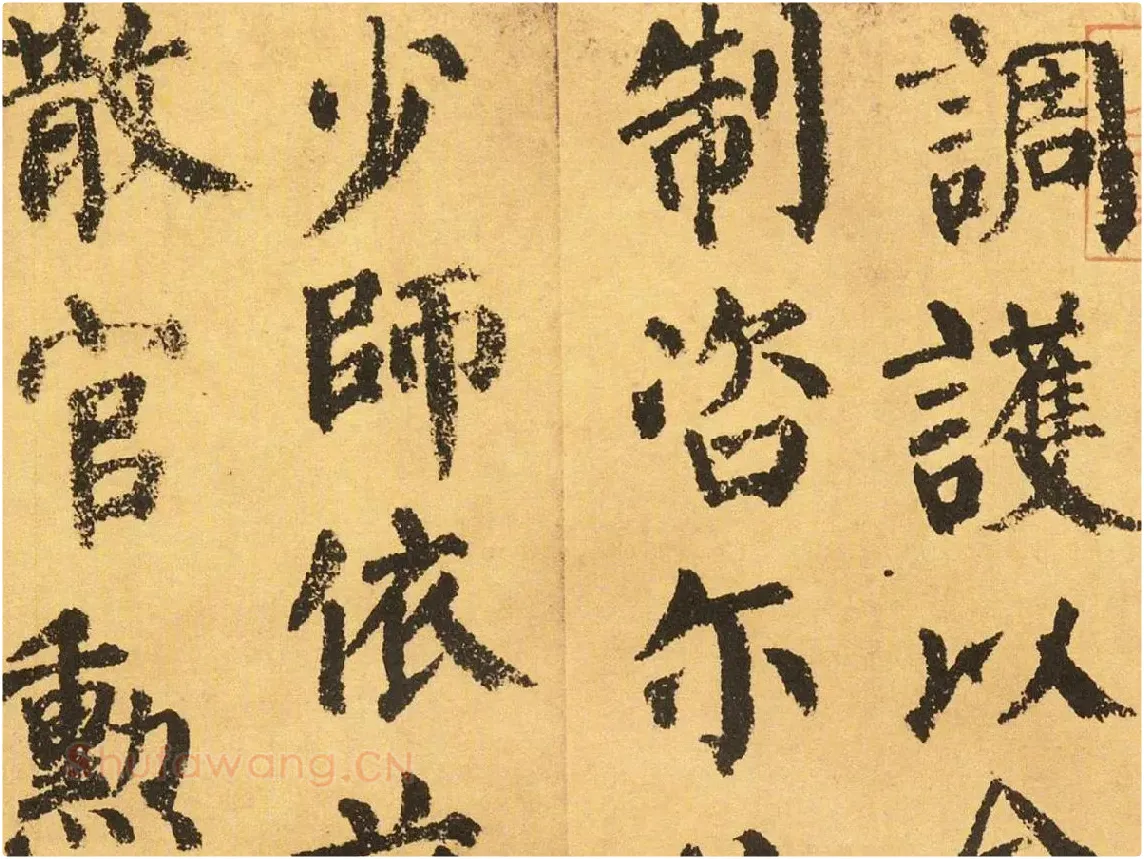 調護以
制咨尔
少師依
散官勳
Shufawang.CN